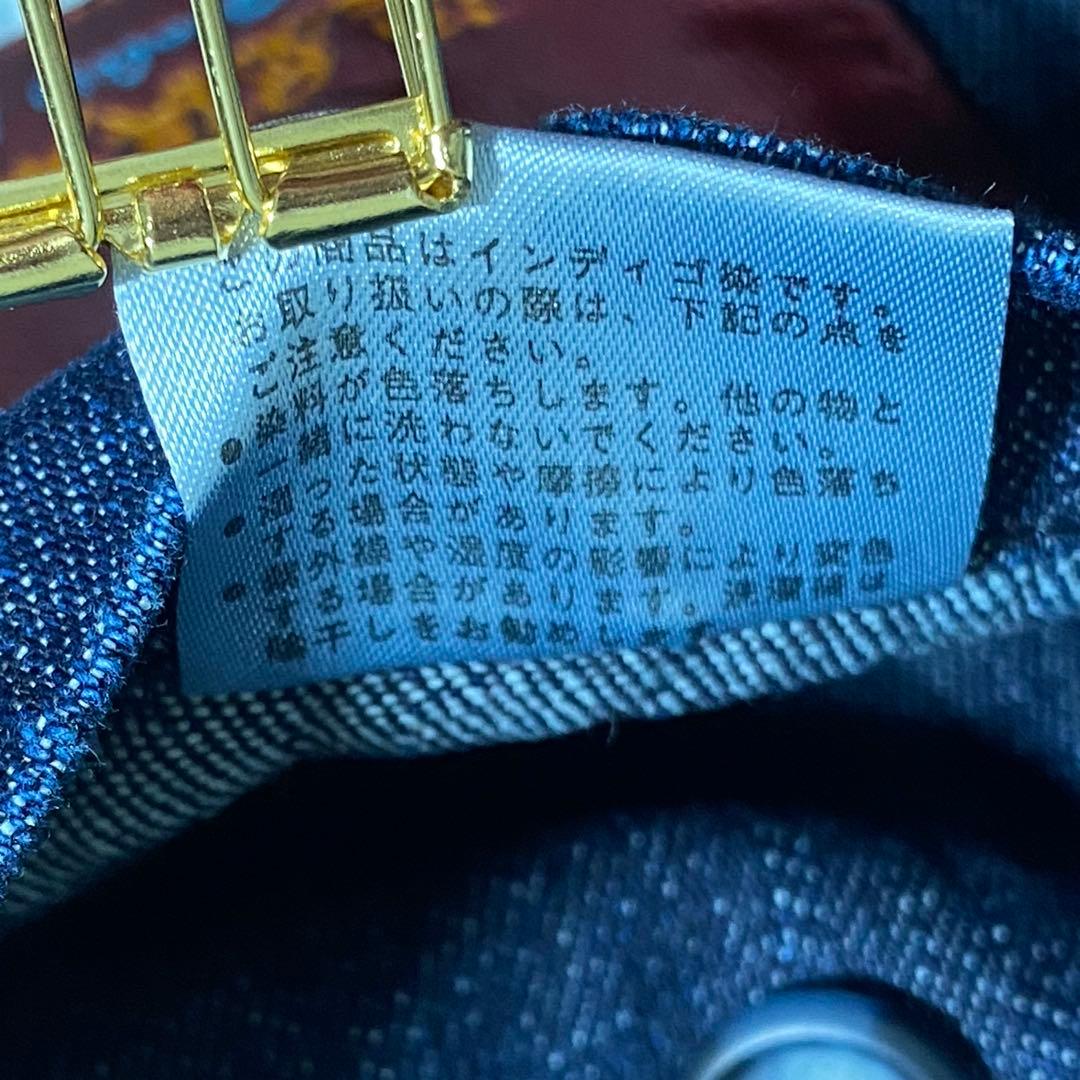 この商品はインディゴ染です。
お取り扱いの際は、下記の点を
ご注意ください。
●染料が色落ちします。他の物と
一緒に洗わないでください。
●濡った状態や摩擦により色落ち
する場合があります。
●紫外線や湿度の影響により変色
する場合があります。洗濯後は
陰干しをお勧めします